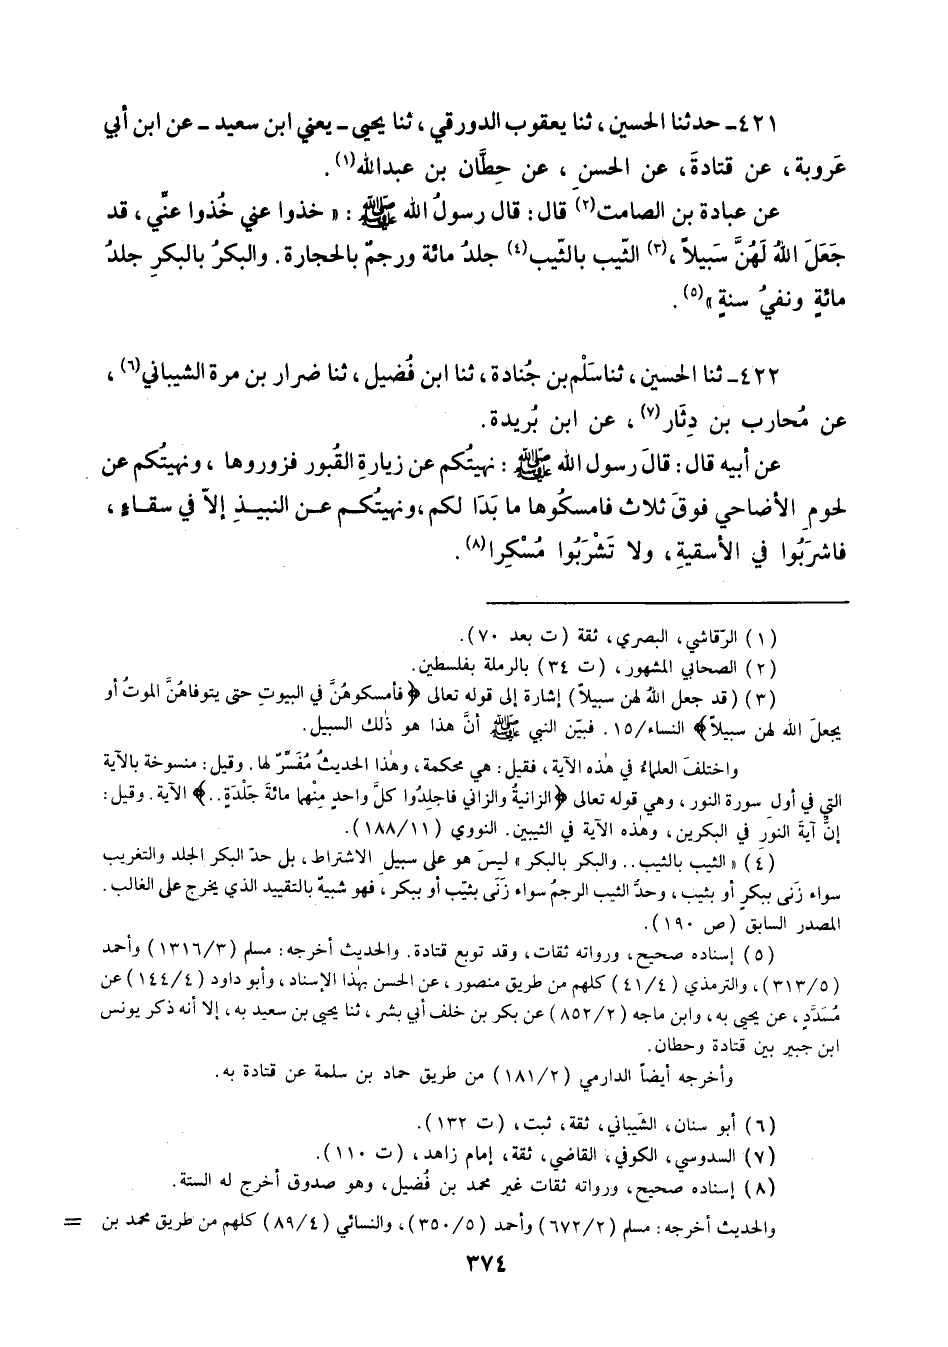 ٤٢١ـ حدثنا الحسين ، ثنا يعقوب الدورقي ، ثنا يحيى ـ يعني ابن سعيد ـ عن ابن أبي
عَروبة ، عن قتادةَ ، عن الحسنِ ، عن حِطَّان بن عبدالله(١) .
عن عبادة بن الصامت(٢) قال : قال رسولُ الله ﷺ : « خذوا عني خُذوا عنّي ، قد
جَعَلَ اللهُ لَهُنَّ سَبيلاً ،(٣) الثّيب بالثّيب(٤) جلدُ مائة ورجمٌ بالحجارة . والبكرُ بالبكرِ جلدُ
مائةٍ ونفيُ سنةٍ »(٥) .
٤٢٢ـ ثنا الحسين ، ثنا سَلْم بن جُنادة ، ثنا ابن فُضيل ، ثنا ضرار بن مرة الشيباني(٦) ،
عن مُحارب بن دِثَار(٧) ، عن ابن بُريدة .
عن أبيه قال : قالَ رسول الله ﷺ : نهيتُكم عن زيارةِ القُبور فزوروها ، ونهيتُكم عن
لحومِ الأضاحي فوقَ ثلاث فامسكُوها ما بَدَا لكم ، ونهيتُكم عن النبيذِ إلاّ في سقاءٍ ،
فاشرَبُوا في الأسقيةِ ، ولا تَشْرَبُوا مُسْكِرا(٨) .
(١) الرّقاشي ، البصري ، ثقة (ت بعد ٧٠) .
(٢) الصحابي المشهور ، (ت ٣٤) بالرملة بفلسطين .
(٣) (قد جعل اللهُ لهن سبيلاً) إشارة إلى قوله تعالى ﴿فأمسكوهُنَّ في البيوتِ حتى يتوفاهُنَّ الموتُ أو
يجعلَ الله لهن سبيلاً﴾ النساء/١٥ . فبيّن النبي ﷺ أنَّ هذا هو ذٰلك السبيل .
واختلفَ العلماءُ في هٰذه الآية ، فقيل : هي محكمة ، وهٰذا الحديثُ مُفَسِّرٌ لها . وقيل : منسوخة بالآية
التي في أول سورة النور ، وهي قوله تعالى ﴿الزانيةُ والزاني فاجلِدُوا كلَّ واحدٍ مِنْهما مائةَ جَلْدَةٍ . .﴾ الآية . وقيل :
إنَّ آيةَ النورِ في البكرين ، وهٰذه الآية في الثيبين . النووي (١٨٨/١١) .
(٤) « الثيب بالثيب . . والبكر بالبكر » ليسَ هو على سبيل الاشتراط ، بل حدّ البكر الجلد والتغريب
سواء زَنى ببكرٍ أو بثيب ، وحدُّ الثيب الرجمُ سواء زَنَى بثيّب أو ببكر ، فهو شبيهٌ بالتقييد الذي يخرج على الغالب .
المصدر السابق (ص ١٩٠) .
(٥) إسناده صحيح ، ورواته ثقات ، وقد توبع قتادة . والحديث أخرجه : مسلم (١٣١٦/٣) وأحمد
(٣١٣/٥) ، والترمذي (٤١/٤) كلهم من طريق منصور ، عن الحسن بهٰذا الإسناد ، وأبو داود (١٤٤/٤) عن
مُسَدَّدٍ ، عن يحيى به ، وابن ماجه (٨٥٢/٢) عن بكر بن خلف أبي بشر ، ثنا يحيى بن سعيد به ، إلا أنه ذكر يونس
ابن جبير بين قتادة وحطان .
وأخرجه أيضاً الدارمي (١٨١/٢) من طريق حماد بن سلمة عن قتادة به .
(٦) أبو سنان ، الشَيباني ، ثقة ، ثبت ، (ت ١٣٢) .
(٧) السدوسي ، الكوفي ، القاضي ، ثقة ، إمام زاهد ، (ت ١١٠) .
(٨) إسناده صحيح ، ورواته ثقات غير محمد بن فُضيل ، وهو صدوق أخرج له الستة .
والحديث أخرجه : مسلم (٦٧٢/٢) وأحمد (٣٥٠/٥) ، والنسائي (٨٩/٤) كلهم من طريق محمد بن =
٣٧٤